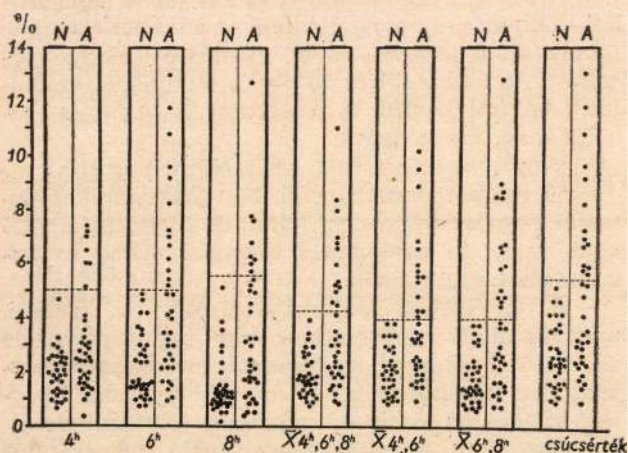 %
N A N A N A N A N A N A N A
14
12
10
8
6
4
2
0
4ʰ 6ʰ 8ʰ X̄4ʰ,6ʰ,8ʰ X̄4ʰ,6ʰ X̄6ʰ,8ʰ csúcsérték